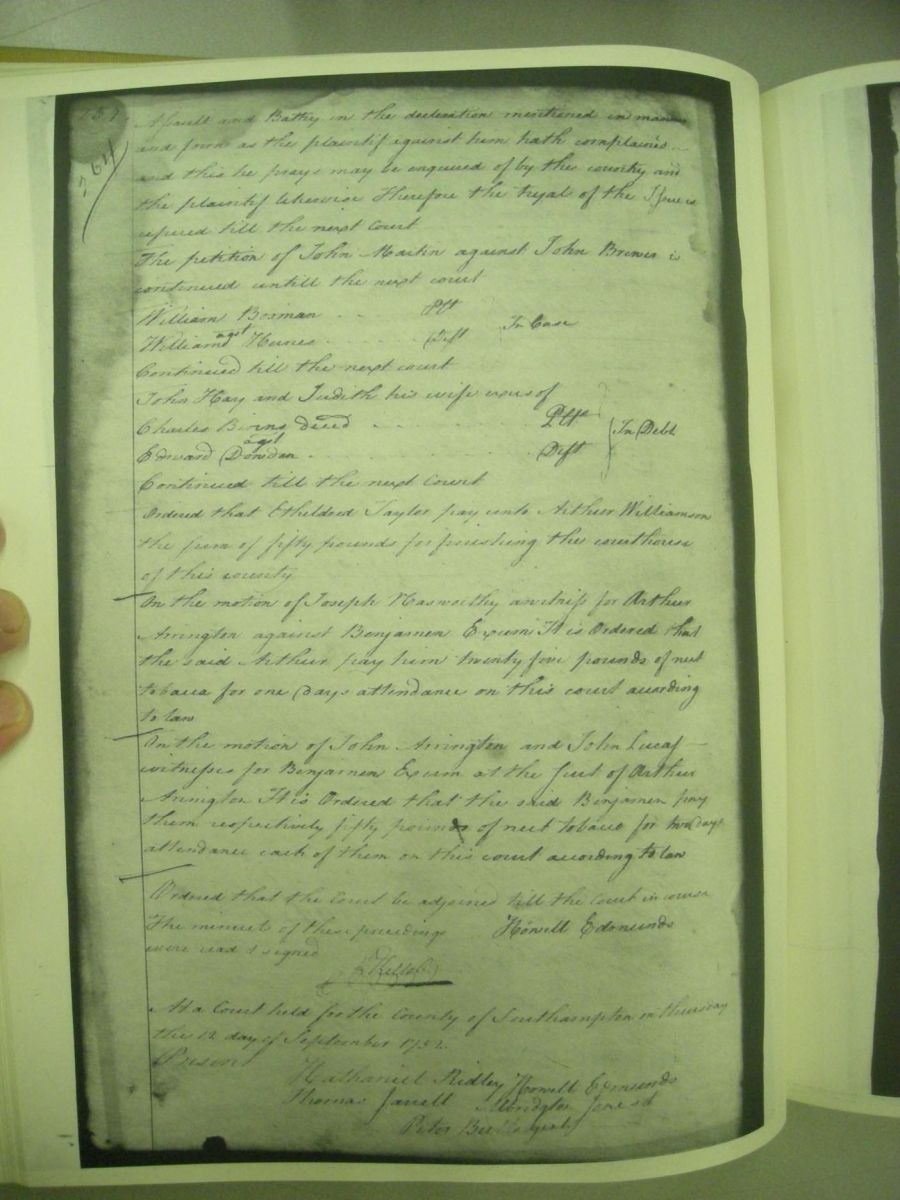 264
Assault and Battry in the declaration mentioned in manner
and form as the plaintif against him hath complained
and this he prays may be enquired of by the country and
the plaintif likewise Therefore the tryal of the Issue is
refered till the next Court
The petition of John Martin against John Brewer is
continued untill the next court
William Boxman Plt
agst In Case
William Hines Deft
Continued till the next court
John Hay and Judith his wife exrs of
Charles Binns decd Plts
agst In Debt
Edward Deft
Continued till the next Court
Ordered that Etheldred Taylor pay unto Arthur Williamson
the sum of fifty pounds for finishing the courthouse
of this county
On the motion of Joseph Nasworthy a witness for Arthur
Arrington against Benjamen Exum It is Ordered that
the said Arthur pay him twenty five pounds of nett
tobacca for one days attendance on this court according
to law
On the motion of John Arrington and John Lucas
witnesses for Benjamen Exum at the suit of Arthur
Arrington It is Ordered that the said Benjamen pay
them respectively fifty pounds of nett tobacco for two days
attendance each of them on this court according to law
Ordered that the Court be adjorned till the Court in course
The minuts of these proceedings Howell Edmunds
were read & signed
At a Court held for the County of Southampton on thursday
the 12 day of September 1752
Present
Nathaniel Ridley Howell Edmunds
Thomas Jarrell Jones
Peter